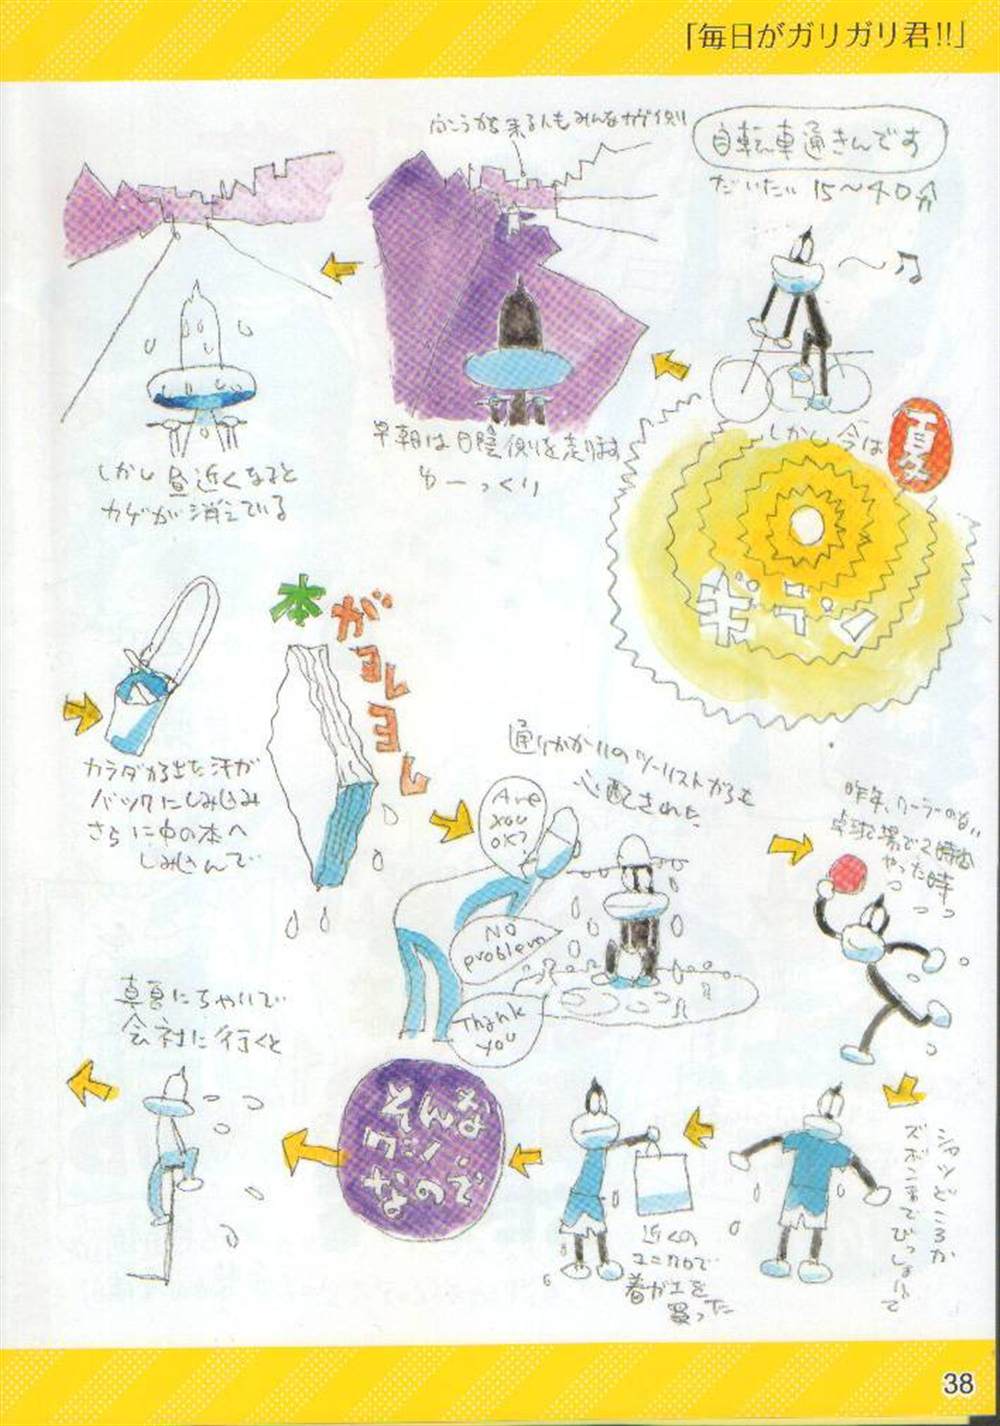 「毎日がガリガリ君!!」
自転車通きんです
だいたい15〜40分
しかし今は
夏
ギラン
向こうから来る人もみんなカゲ側
早朝は日陰側を走ります
ゆーっくり
しかし昼近くなると
カゲが消えている
カラダから出た汗が
バックにしみ込み
さらに中の本へ
しみ込んで
本がヨレヨレ
通りがかりのツーリストからも
心配された
Are
you
OK?
No
problem
Thank
you
昨年、クーラーのない
卓球場で2時間
やった時
シャツどころか
ズボンまでびっしょりで
近くの
ユニクロで
着がえを
買った
そんな
なので
真夏に
会社に行くと
38